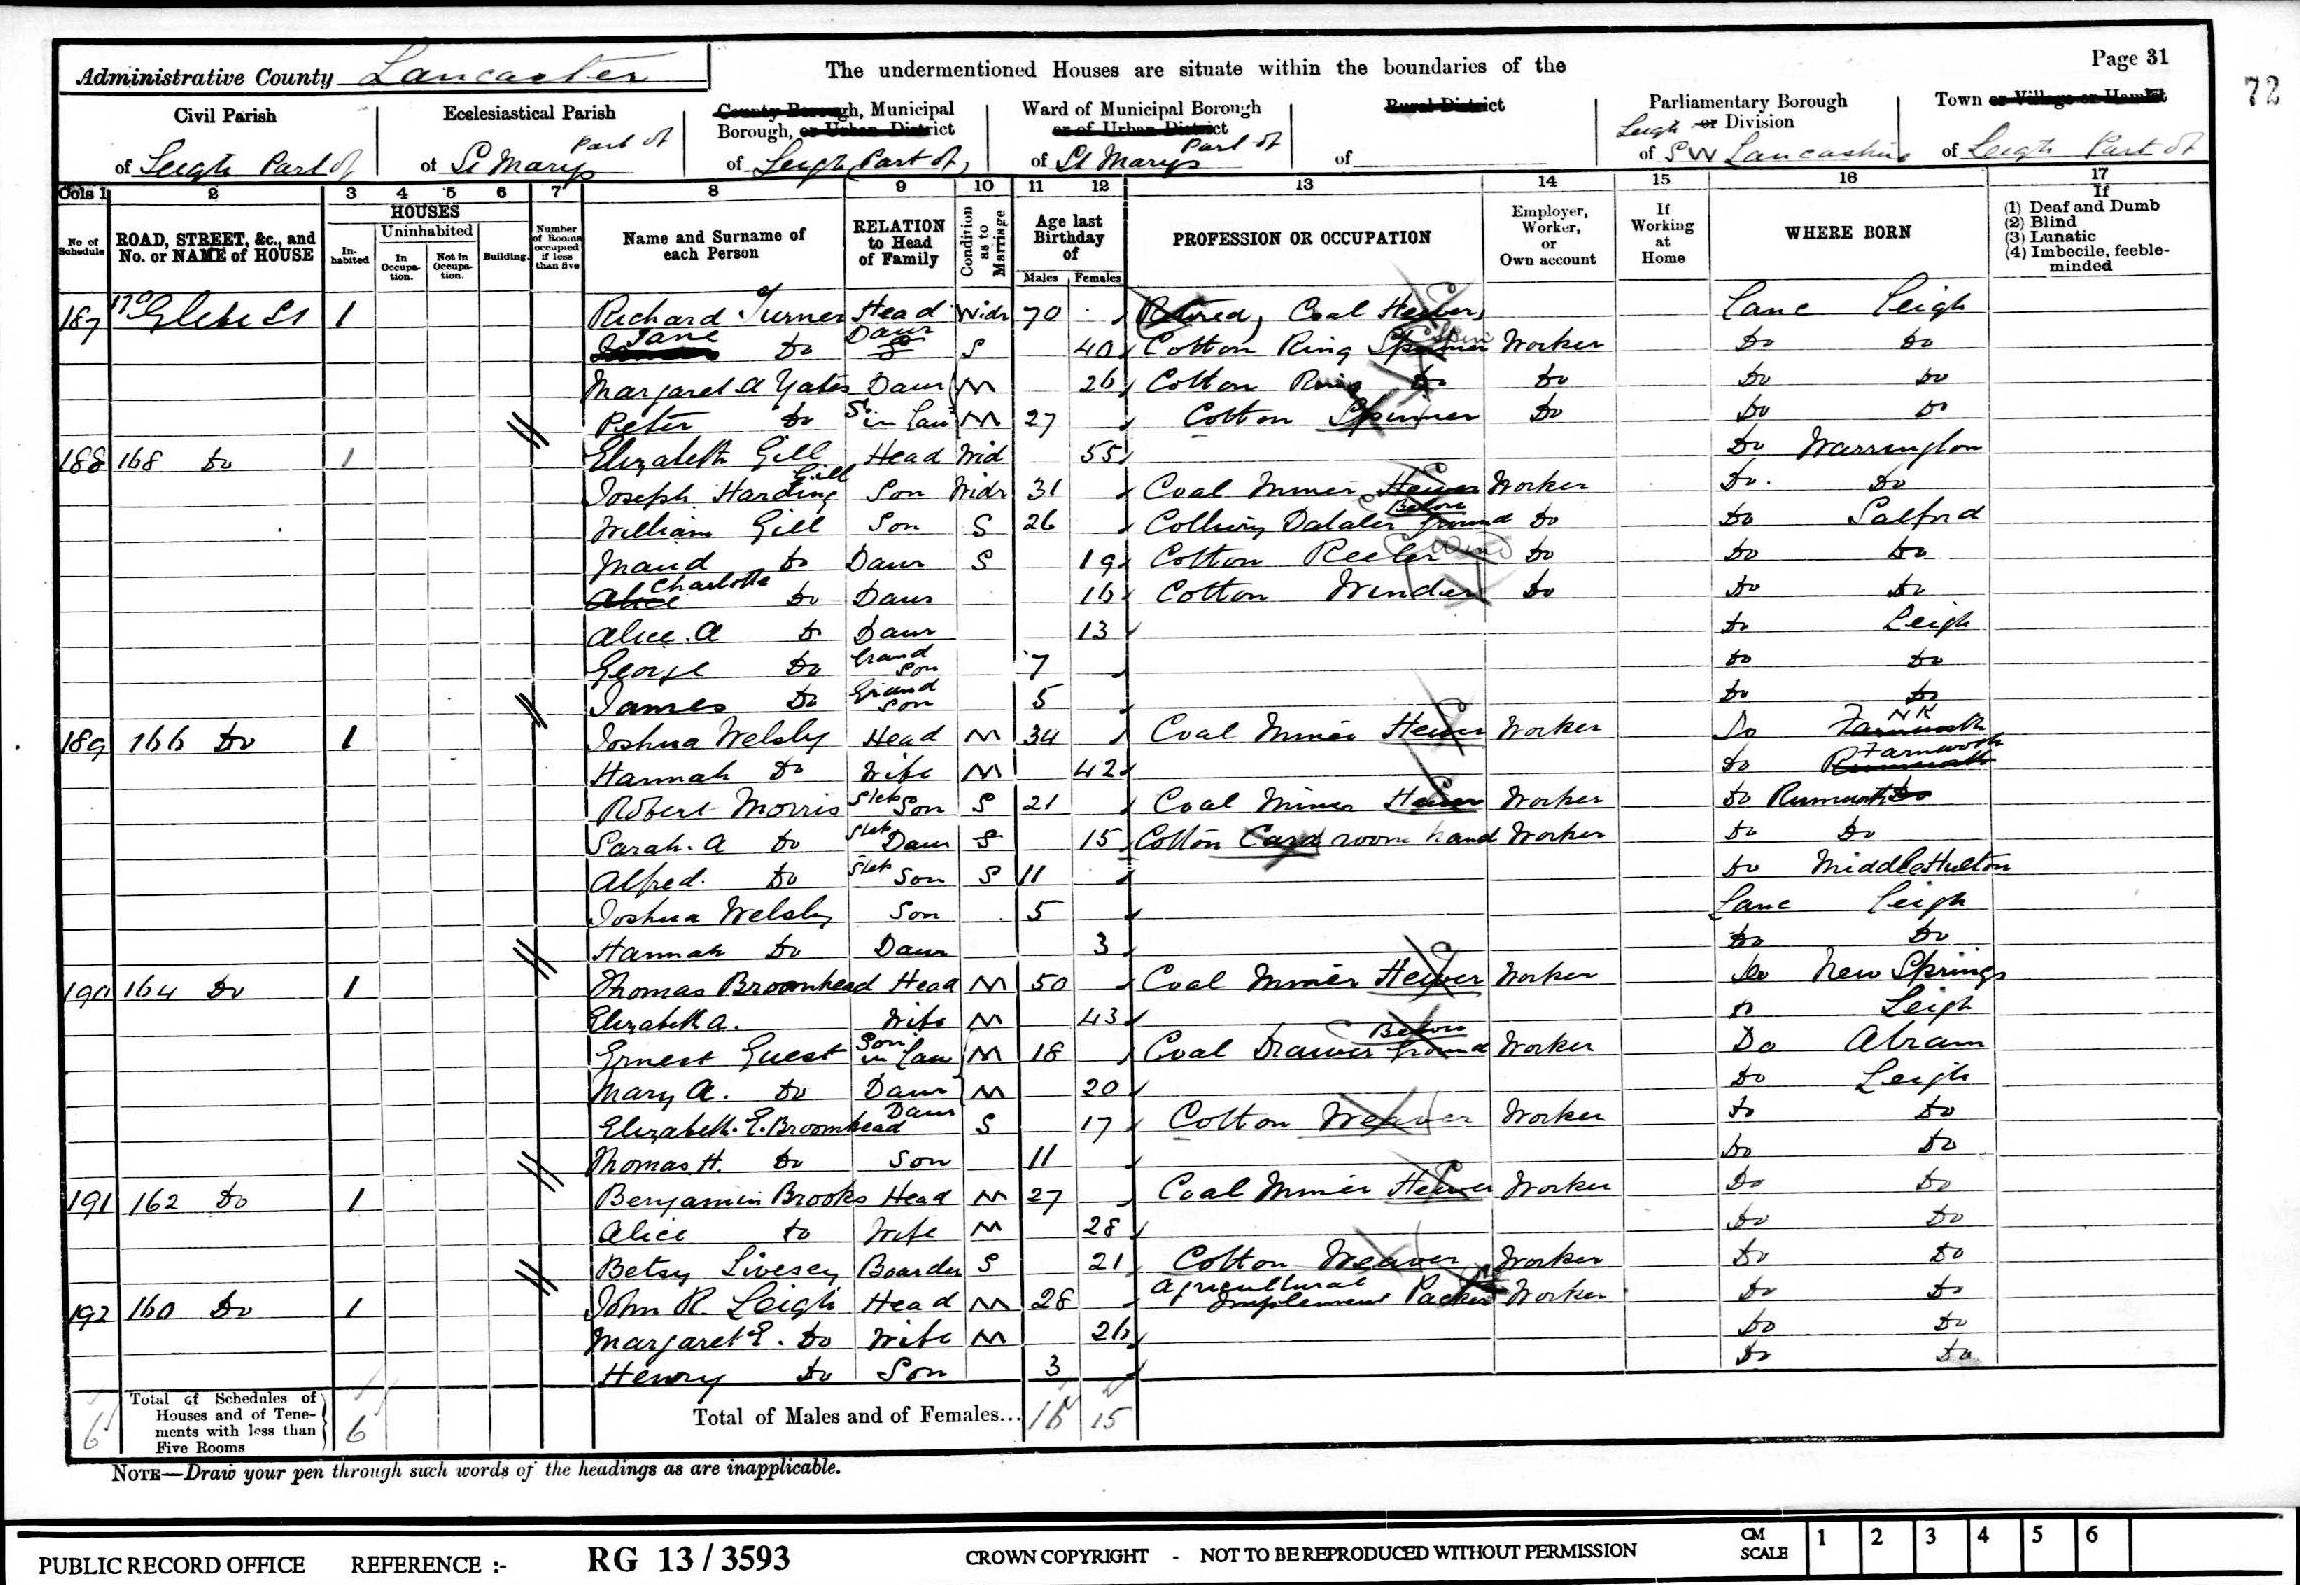 Page 31
72
Administrative County Lancaster
The undermentioned Houses are situate within the boundaries of the
Civil Parish
of Leigh Part of
Ecclesiastical Parish
of St Marys Part of
County Borough, Municipal
Borough, or Urban District
of Leigh (Part of)
Ward of Municipal Borough
or of Urban District
of St Marys Part of
Rural District
of
Parliamentary Borough
Leigh or Division
of SW Lancashire
Town or Village or Hamlet
of Leigh Part of
Cols 1 2 3 4 5 6 7 8 9 10 11 12 13 14 15 16 17
No of Schedule
ROAD, STREET, &c., and No. or NAME of HOUSE
HOUSES
Inhabited
Uninhabited
In Occupation.
Not in Occupation.
Building.
Number of Rooms occupied if less than five
Name and Surname of each Person
RELATION to Head of Family
Condition as to Marriage
Age last Birthday of
Males Females
PROFESSION OR OCCUPATION
Employer, Worker, or Own account
If Working at Home
WHERE BORN
If
(1) Deaf and Dumb
(2) Blind
(3) Lunatic
(4) Imbecile, feeble-minded
187 170 Glebe St 1 Richard Turner Head Widr 70 Retired, Coal Hewer Lanc Leigh
Jane Do Daur S 40 Cotton Ring Spinner Worker Do Do
Margaret A Yates Daur M 26 Cotton Ring Do Do Do Do
Peter Do S. in Law M 27 Cotton Spinner Do Do Do
188 168 Do 1 Elizabeth Gill Head Wid 55 Do Warrington
Joseph Harding Gill Son Widr 31 Coal Miner Hewer Worker Do. Do
William Gill Son S 26 Colliery Dataler Below ground Do Do Salford
Maud Do Daur S 19 Cotton Reeler Do Do Do
Alice Charlotte Do Daur 16 Cotton Winder Do Do Do
Alice. A Do Daur 13 Do Leigh
George Do Grand Son 7 Do Do
James Do Grand Son 5 Do Do
189 166 Do 1 Joshua Welsby Head M 34 Coal Miner Hewer Worker Do Farnworth NK
Hannah Do Wife M 42 Do Rumworth Farnworth
Robert Morris Step Son S 21 Coal Miner Hewer Worker Do Rumworth Do
Sarah. A Do Step Daur S 15 Cotton Card room hand Worker Do Do
Alfred. Do Step Son S 11 Do Middle Hulton
Joshua Welsby Son 5 Lanc Leigh
Hannah Do Daur 3 Do Do
190 164 Do 1 Thomas Broomhead Head M 50 Coal Miner Hewer Worker Do New Springs
Elizabeth A. Wife M 43 Do Leigh
Ernest Guest Son in Law M 18 Coal Drawer Below Ground Worker Do Abram
Mary A. Do Daur M 20 Do Leigh
Elizabeth. E. Broomhead Daur S 17 Cotton Weaver Worker Do Do
Thomas H. Do Son 11 Do Do
191 162 Do 1 Benjamin Brooks Head M 27 Coal Miner Hewer Worker Do Do
Alice Do Wife M 28 Do Do
Betsy Livesey Boarder S 21 Cotton Weaver Worker Do Do
192 160 Do 1 John R. Leigh Head M 28 Agricultural Implement Packer Worker Do Do
Margaret E. Do Wife M 26 Do Do
Henry Do Son 3 Do Do
6 Total of Schedules of Houses and of Tenements with less than Five Rooms 6 Total of Males and of Females... 16 15
NOTE—Draw your pen through such words of the headings as are inapplicable.
PUBLIC RECORD OFFICE REFERENCE :- RG 13 / 3593 CROWN COPYRIGHT - NOT TO BE REPRODUCED WITHOUT PERMISSION CM SCALE 1 2 3 4 5 6